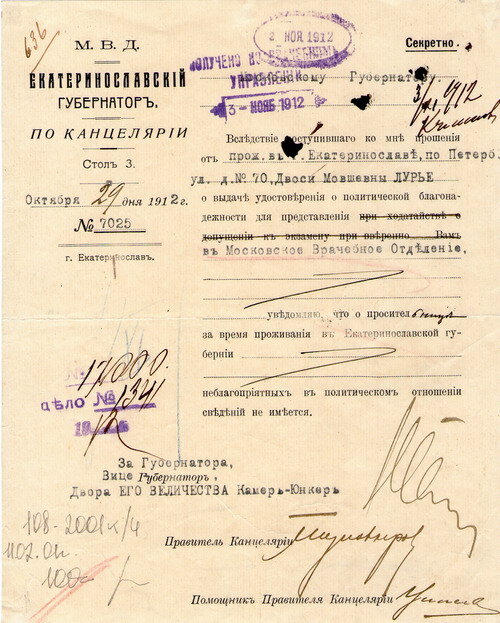 636
М. В. Д.
ЕКАТЕРИНОСЛАВСКІЙ
ГУБЕРНАТОРЪ.
ПО КАНЦЕЛЯРІИ
СТОЛЪ 3.
Октября 29 дня 1912 г.
№ 7025
г. Екатеринославъ.
2 НОЯ 1912
ПОЛУЧЕНО
УПРАВЛЕНІИ
3 - НОЯБ 1912
Секретно.
Московскому Губернатору.
3/XI 1912
Вслѣдствіе поступившаго ко мнѣ прошенія
отъ прож. въ г. Екатеринославѣ, по Петерб.
ул. д. № 70, Двоси Мовшевны ЛУРЬЕ
о выдачѣ удостовѣренія о политической благона-
дежности для представленія при ходатайствѣ о
допущеніи къ экзамену при ввѣренно. Вамъ
въ Московское Врачебное Отдѣленіе,
увѣдомляю, что о просител
за время проживанія въ Екатеринославской гу-
берніи
неблагопріятныхъ въ политическомъ отношеніи
свѣдѣній не имѣется.
17000.
дѣло № 1341
За Губернатора,
Вице Губернаторъ,
Двора ЕГО ВЕЛИЧЕСТВА Камеръ-Юнкеръ
Правитель Канцеляріи
Помощникъ Правителя Канцеляріи
108-2001к/4
1102.01.
100=